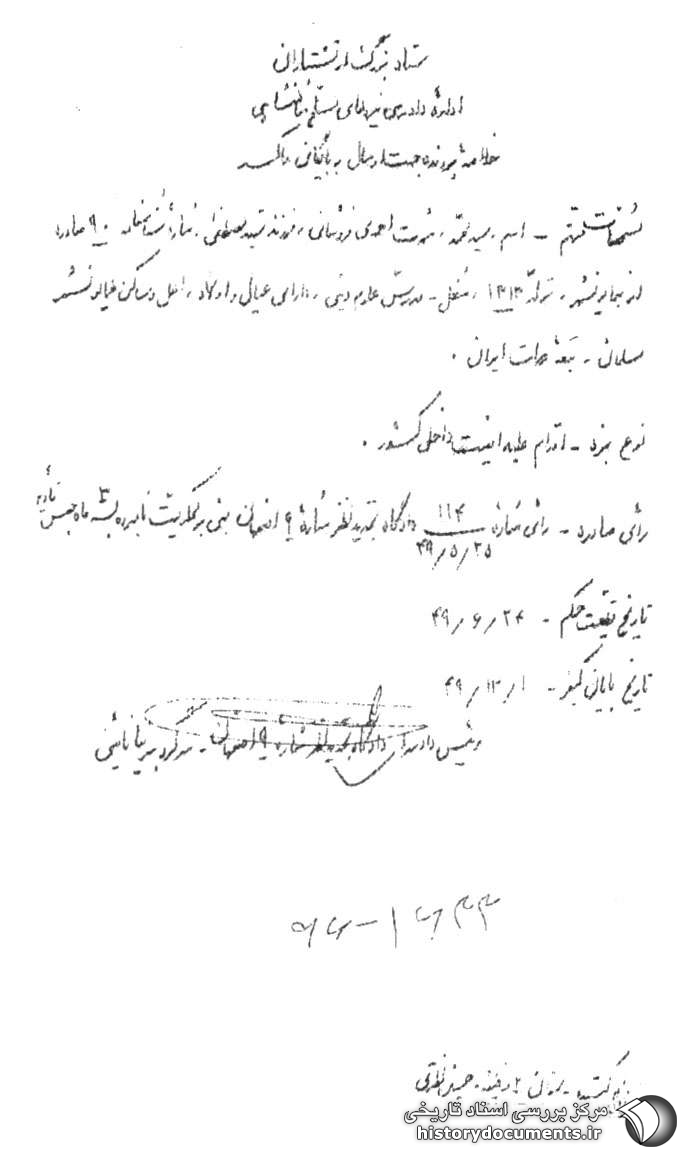 ستاد بزرگ ارتشتاران
ادارهٔ دادرسی نیروهای مسلح شاهنشاهی
خلاصهٔ پرونده جهت ارسال به بایگانی راکد
مشخصات متهم - اسم، سید محمد، شهرت احمدی فروشانی، فرزند سید مصطفی، شمارهٔ شناسنامه ۹۰ صادره
از همایونشهر، تولد ۱۳۱۳، شغل - مدرس علوم دینی، دارای عیال و اولاد، اهل و ساکن همایونشهر
مسلمان - تبعهٔ دولت ایران.
نوع بزه - اقدام علیه امنیت داخلی کشور.
رأی صادره - رأی شمارهٔ ۱۱۴ دادگاه تجدید نظر شمارهٔ ۹ اصفهان مبنی بر محکومیت نامبرده به سه ماه حبس تأدیبی
۴۹/۵/۲۵
تاریخ قطعیت حکم - ۴۹/۶/۲۴
تاریخ پایان کیفر - ۴۹/۱۲/۱
رئیس دادگاه تجدید نظر شماره ۹ اصفهان - سرگرد
مرکز بررسی اسناد تاریخی
historydocuments.ir